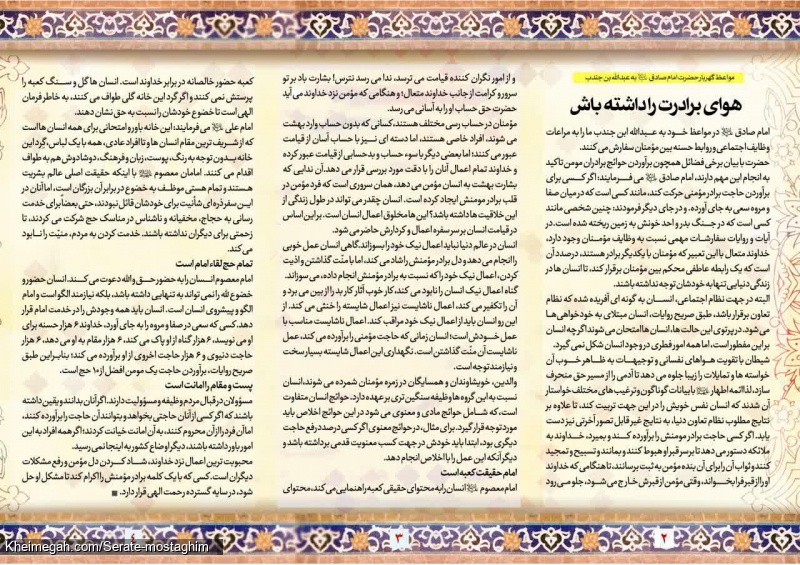 مواعظ گهربار حضرت امام صادق به عبدالله بن جندب
هوای برادرت را داشته باش
امام صادق در مواعظ خود به عبدالله ابن جندب ما را به مراعات
وظایف اجتماعی و روابط حسنه بین مؤمنان سفارش می کنند.
حضرت با بیان برخی فضائل همچون برآوردن حوائج برادران مومن تاکید
به انجام این مهم دارند، امام صادق می فرمایند: اگر کسی برای
برآوردن حاجت برادر مؤمنی حرکت کند، مانند کسی است که در میان صفا
و مروه سعی به جای آورده. و در جای دیگر فرمودند: چنین شخصی مانند
کسی است که در جنگ بدر و احد خونش به زمین ریخته شده است. در
آیات و روایات سفارشات مهمی نسبت به وظایف مؤمنان وجود دارد،
خداوند متعال با این تعبیر که مؤمنان با یکدیگر برادر هستند، درصدد آن
است که یک رابطه عاطفی محکم بین مؤمنان برقرار کند، تا انسان ها در
زندگی دنیایی تنها به خودشان توجه نداشته باشند.
البته در جهت نظام اجتماعی، انسان به گونه ای آفریده شده که نظام
تعاون برقرار باشد، طبق صریح روایات، انسان مبتلای به خودخواهی ها
می شود. در پرتوی این حالت ها، انسان ها امتحان می شوند اگرچه انسان
بر این مفطور است، اما همه امور فطری در وجود انسان شکل نمی گیرد.
شیطان با تقویت هواهای نفسانی و توجیهات به ظاهر خوب آن
خواسته ها و تمایلات را زیبا جلوه می دهد تا آدمی را از مسیر حق منحرف
سازد، لذا ائمه اطهار با بیانات گوناگون و ترغیب های مختلف خواستار
آن شدند که انسان نفس خویش را در این جهت تربیت کند، تا علاوه بر
نتایج مطلوب نظام تعاون دنیا، به نتایج غیر قابل تصور آخرتی نیز دست
یابد. اگر کسی حاجت برادر مومنش را برآورده کند و بمیرد، خداوند به
ملائکه دستور می دهد تا بر سر قبر او هبوط کنند و بمانند و تسبیح و تمجید
کنند و ثواب آن را برای آن بنده مؤمن به ثبت برسانند، تا هنگامی که خداوند
او را از قبر فرا بخواند، وقتی مؤمن از قبرش خارج می شود، جلو می رود
۲
و از امور نگران کننده قیامت می ترسد، ندا می رسد نترس! بشارت باد بر تو
سرور و کرامت از جانب خداوند متعال؛ و هنگامی که مؤمن نزد خداوند می آید
حضرت حق حساب او را به آسانی می رسد.
مؤمنان در حساب رسی مختلف هستند، کسانی که بدون حساب وارد بهشت
می شوند، افراد خاصی هستند، اما دسته ای نیز با حساب آسان از قیامت
عبور می کنند؛ اما بعضی دیگر با سوء حساب و بدحسابی از قیامت عبور کرده
و خداوند تمام اعمال آنان را با دقت مورد بررسی قرار می دهد. آن ندایی که
بشارت بهشت به انسان مؤمن می دهد، همان سروری است که فرد مومن در
قلب برادر مومنش ایجاد کرده است. انسان چقدر می تواند در طول زندگی از
این خلاقیت ها داشته باشد؟ این ها مخلوق اعمال انسان است. بر این اساس
در قیامت انسان بر سر سفره اعمال و کردارش حاضر می شود.
انسان در عالم دنیا نباید اعمال نیک خود را بسوزاند. گاهی انسان عمل خوبی
را انجام می دهد و دل برادر مومنش را شاد می کند، اما با منّت گذاشتن و اذیت
کردن، اعمال نیک خود را که نسبت به برادر مؤمنش انجام داده، می سوزاند.
گناه اعمال نیک انسان را نابود می کند، کار خوب آثار کار بد را از بین می برد و
آن را تکفیر می کند، اعمال ناشایست نیز اعمال شایسته را خنثی می کند. از
این رو انسان باید از اعمال نیک خود مراقب کند. اعمال ناشایست مناسب با
عمل خودش است؛ انسان زمانی که حاجت مؤمنی را برآورده می کند، عمل
ناشایست آن منّت گذاشتن است. نگهداری این اعمال شایسته بسیار سخت
و نیازمند توجه است.
والدین، خویشاوندان و همسایگان در زمره مؤمنان شمرده می شوند، انسان
نسبت به این گروه ها وظیفه سنگین تری بر عهده دارد. حوائج انسان متفاوت
است، که شامل حوائج مادی و معنوی می شود در این حوائج اخلاص باید
مورد توجه قرار گیرد. برای مثال، در حوائج معنوی اگر کسی درصدد رفع حاجت
دیگری بود، ابتدا باید خودش در جهت کسب معنویت قدمی برداشته باشد و
دیگر آنکه این عمل را با اخلاص انجام دهد.
امام حقیقت کعبه است
امام معصوم انسان را به محتوای حقیقی کعبه راهنمایی می کند، محتوای
۳
کعبه حضور خالصانه در برابر خداوند است. انسان ها گل و سنگ کعبه را
پرستش نمی کنند و اگر گرد این خانه گلی طواف می کنند، به خاطر فرمان
الهی است تا خضوع خودشان را نسبت به حق نشان دهند.
امام علی می فرمایند؛ این خانه باور و امتحانی برای همه انسان ها است
که از شریف ترین مقام انسان ها و تا افراد عادی، همه با یک لباس، گرد این
خانه بدون توجه به رنگ، پوست، زبان و فرهنگ، دوشادوش هم به طواف
اقدام می کنند. امامان معصوم با اینکه حقیقت اصلی عالم بشریت
هستند و تمام هستی موظف به خضوع در برابر آن بزرگان است، اما آنان در
این سفر ذره ای شأنیت برای خودشان قائل نبودند، حتی بعضاً برای خدمت
رسانی به حجاج، مخفیانه و ناشناس در مناسک حج شرکت می کردند، تا
زحمتی برای دیگران نداشته باشند. خدمت کردن به مردم، منیّت را نابود
می کند.
تمام حج لقاء امام است
امام معصوم انسان را به حضور حق و الله دعوت می کند. انسان حضور و
خضوع لله را نمی تواند به تنهایی داشته باشد، بلکه نیازمند الگو است و امام
الگو و پیشروی انسان است. انسان باید همه وجودش را در خدمت امام قرار
دهد. کسی که سعی در صفا و مروه را به جای آورد، خداوند ۶ هزار حسنه برای
او می نویسد، ۶ هزار گناه از او پاک می کند، ۶ هزار مقام به او می دهد، ۶ هزار
حاجت دنیوی و ۶ هزار حاجت اخروی از او برآورده می کند؛ بنابراین طبق
صریح روایات، برآوردن حاجت یک مومن افضل از ۱۰ حج است.
پست و مقام را امانت است
مسؤولان در قبال مردم وظیفه و مسؤولیت دارند. اگر آنان بدانند و یقین داشته
باشند که اگر کسی از آنان حاجتی بخواهد و بتوانند آن حاجت را برآورده کنند،
اما آن فرد را از آن محروم کنند، به آن امانت خیانت کردند؛ اگر همه افراد به این
امور باور داشته باشند، دیگر اوضاع کشور به اینجا نمی رسید.
محبوبیت ترین اعمال نزد خداوند، شاد کردن دل مؤمن و رفع مشکلات
دیگران است. کسی که با یک کلمه برادر مومنش را اکرام کند تا مشکل او حل
شود، در سایه گسترده رحمت الهی قرار دارد.
Kheimegah.com/Serate-mostaghim